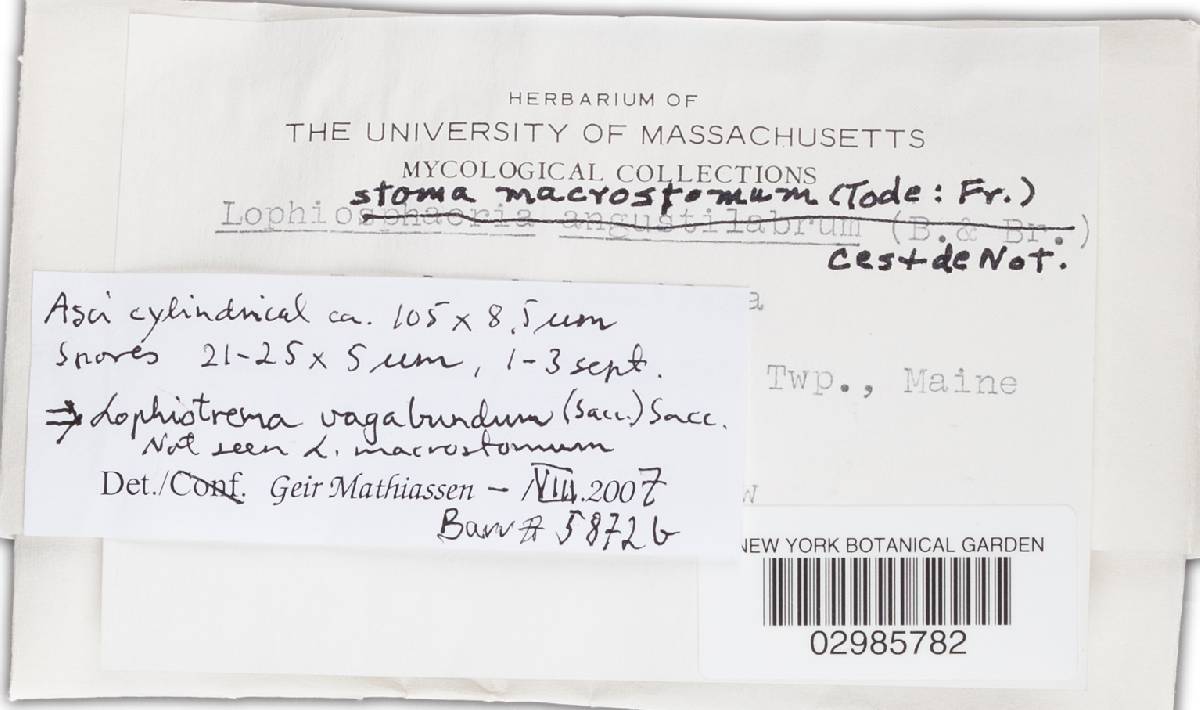 HERBARIUM OF
THE UNIVERSITY OF MASSACHUSETTS
MYCOLOGICAL COLLECTIONS
stoma macrostomum (Tode : Fr.)
Lophiosphaeria angustilabrum (B. & Br.)
Ces + de Not.
a
Twp., Maine
w
Asci cylindrical ca. 105 x 8,5 um
Spores 21-25 x 5 um, 1-3 sept.
⇒ Lophiotrema vagabundum (Sacc.) Sacc.
Not seen L. macrostomum
Det./Conf. Geir Mathiassen – VIII.2007
Barr # 5872 b
NEW YORK BOTANICAL GARDEN
02985782